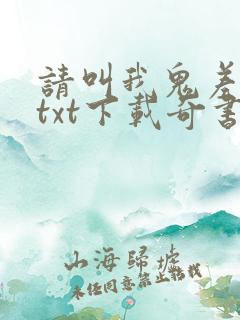 請叫我鬼差
txt下載奇書
山海歸墟
未经同意禁止轉載